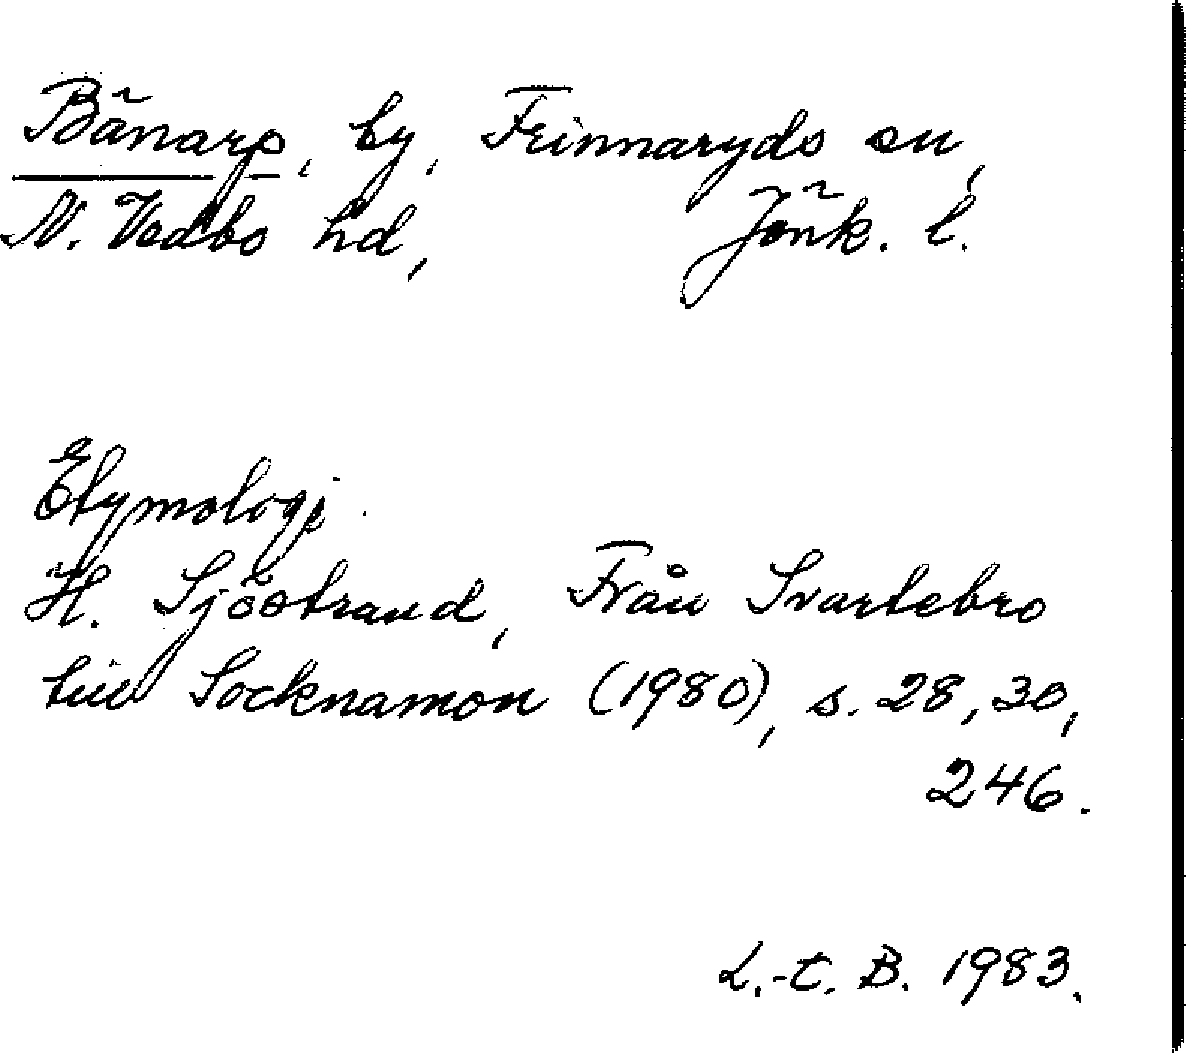 Bänarp, by, Frinnaryds sn,
N. Vedbo hd, Jönk. l.
Etymologi.
H. Sjöstrand, Från Svartebro
till Socknamon (1980), s. 28, 30,
246.
L.-C. B. 1983.